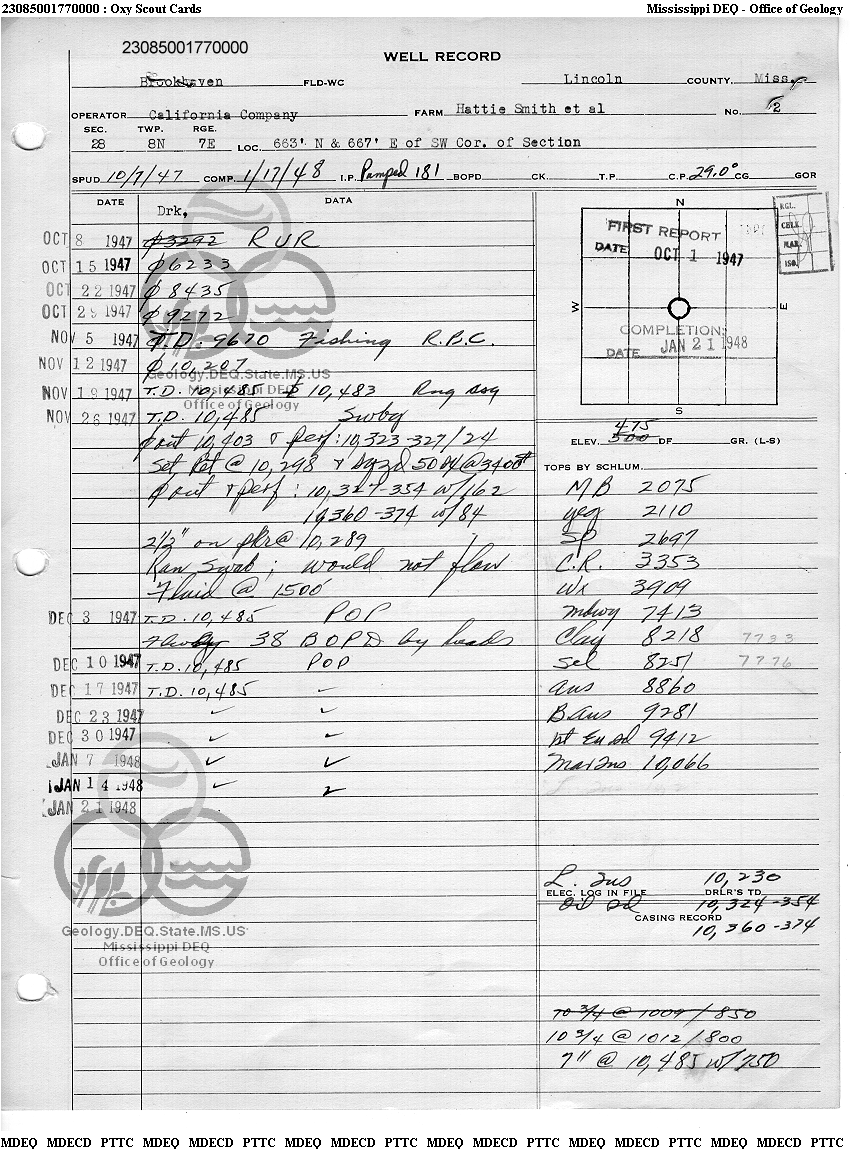 23085001770000 : Oxy Scout Cards Mississippi DEQ - Office of Geology
23085001770000
WELL RECORD
Brookhaven FLD-WC Lincoln COUNTY, Miss.
OPERATOR California Company FARM Hattie Smith et al NO. 2
SEC. TWP. RGE.
28 8N 7E LOC. 663' N & 667' E of SW Cor. of Section
SPUD 10/7/47 COMP. 1/17/48 I.P. Pumped 181 BOPD CK. T.P. C.P. 29.0° CG GOR
DATE DATA
Drk,
OCT 8 1947 ϕ3292 RUR
OCT 15 1947 ϕ6233
OCT 22 1947 ϕ8435
OCT 29 1947 ϕ9272
NOV 5 1947 T.D. 9670 Fishing R.B.C.
NOV 12 1947 ϕ10,207
NOV 19 1947 T.D. 10,485 ϕ 10,483 Rng csg
NOV 26 1947 T.D. 10,485 Swbg
ϕ out 10,403 & perf: 10,323-327/24
Set Ret @ 10,298 & sqzd 50 @ 3400#
ϕ out & perf: 10,327-354 w/162
10,360-374 w/84
2½" on pkr @ 10,289
Ran Swab; would not flow
Fluid @ 1500'
DEC 3 1947 T.D. 10,485 POP
Flowg 38 BOPD by heads
DEC 10 1947 T.D. 10,485 POP
DEC 17 1947 T.D. 10,485 ✓
DEC 23 1947 ✓ ✓
DEC 30 1947 ✓ ✓
JAN 7 1948 ✓ ✓
JAN 14 1948 ✓ ✓
JAN 21 1948
N
W
E
S
FIRST REPORT
DATE OCT 1 1947
COMPLETION
DATE JAN 21 1948
RGL.
MAR.
ISO.
475
ELEV. 500 DF GR. (L-S)
TOPS BY SCHLUM.
MB 2075
yeg 2110
SP 2697
C.R. 3353
Wx 3909
mdwy 7413
Clay 8218 7733
Sel 8251 7776
Aus 8860
B Aus 9281
Eu Sd 9412
Mar Tus 10,066
L. Tus 10,230
ELEC. LOG IN FILE DRLR'S TD
Oil Sd 10,324-354
CASING RECORD
10,360-374
10 3/4 @ 1009/850
10 3/4 @ 1012/800
7" @ 10,485 w/750
Geology.DEQ.State.MS.US
Mississippi DEQ
Office of Geology
Geology.DEQ.State.MS.US
Mississippi DEQ
Office of Geology
MDEQ MDECD PTTC MDEQ MDECD PTTC MDEQ MDECD PTTC MDEQ MDECD PTTC MDEQ MDECD PTTC MDEQ MDECD PTTC